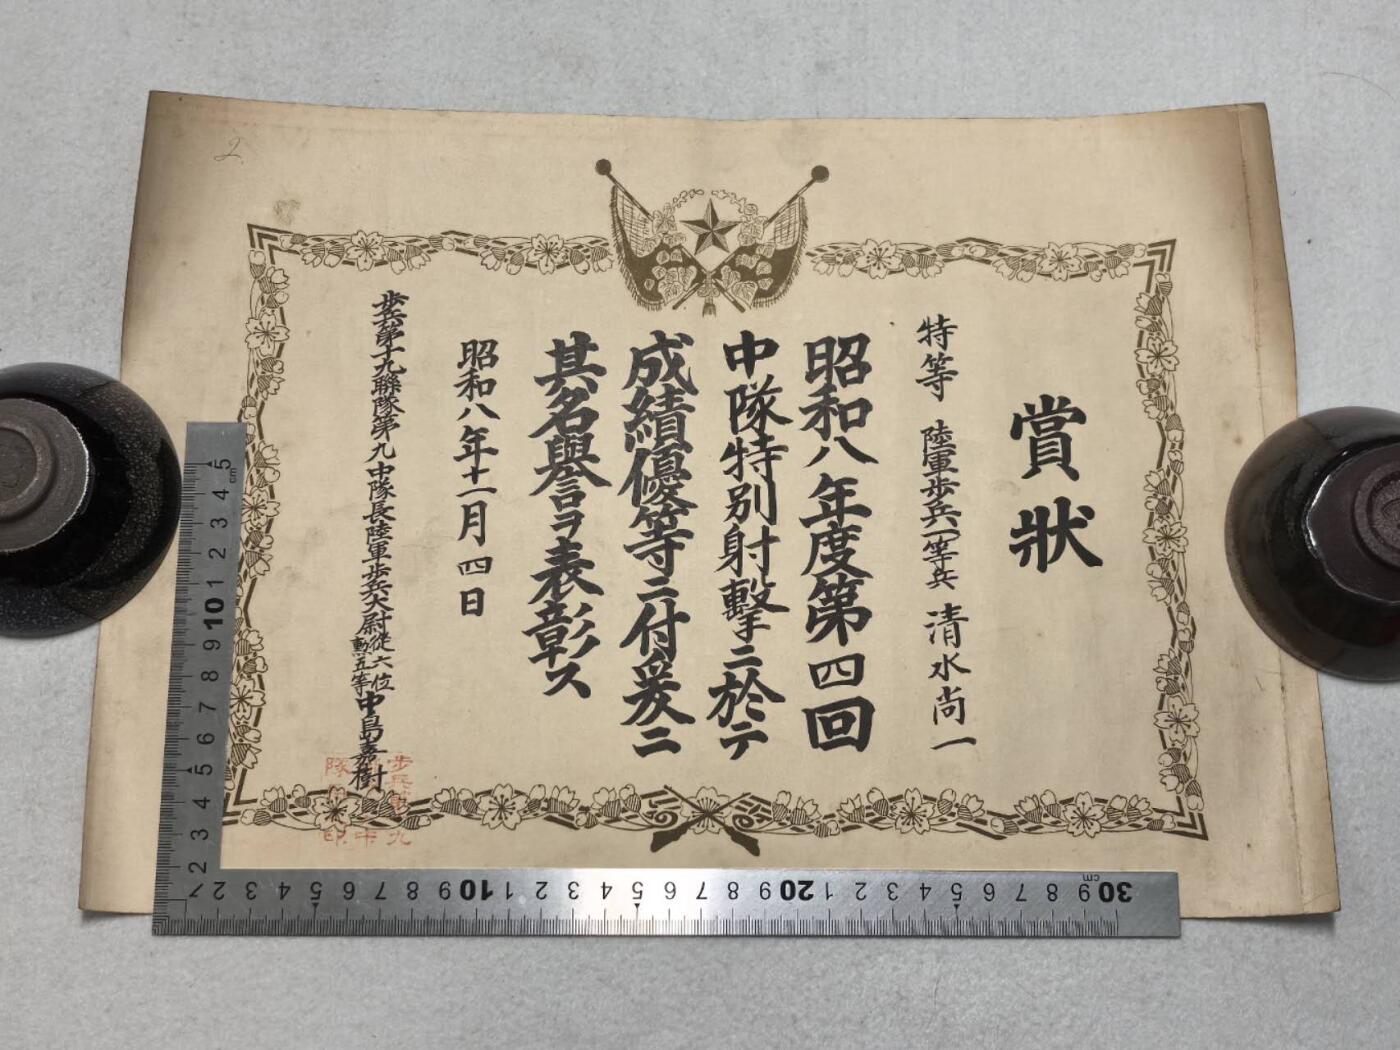 賞狀
特等 陸軍歩兵一等兵 清水尚一
昭和八年度第四回
中隊特別射撃ニ於テ
成績優等ニ付爰ニ
其名譽ヲ表彰ス
昭和八年十一月四日
歩兵第十九聯隊第九中隊長陸軍歩兵大尉從六位勲五等中島嘉樹
2
5 4 3 2 1 10 9 8 7 6 5 4 3 2
cm
2 3 4 5 6 7 8 9 10 1 2 3 4 5 6 7 8 9 20 1 2 3 4 5 6 7 8 9 30
cm